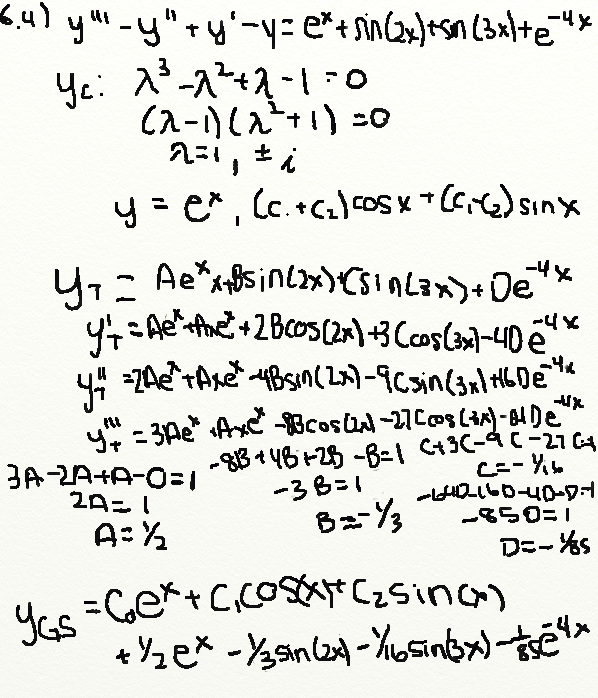 6.4) y''' - y'' + y' - y = e^x + sin(2x) + sin(3x) + e^{-4x}
y_c: λ^3 - λ^2 + λ - 1 = 0
(λ-1)(λ^2+1) = 0
λ = 1, ± i
y = e^x, (c_1+c_2) cos x + (c_1-c_2) sin x
y_T = Ae^x x + Bsin(2x) + Csin(3x) + De^{-4x}
y'_T = Ae^x + Axe^x + 2Bcos(2x) + 3Ccos(3x) - 4De^{-4x}
y''_T = 2Ae^x + Axe^x - 4Bsin(2x) - 9Csin(3x) + 16De^{-4x}
y'''_T = 3Ae^x + Axe^x - 8Bcos(2x) - 27Ccos(3x) - 64De^{-4x}
3A - 2A + A - 0 = 1
2A = 1
A = 1/2
-8B + 4B + 2B - B = 1
-3B = 1
B = -1/3
C + 3C - 9C - 27C
C = -1/16
-64D - 16D - 4D - D = 1
-85D = 1
D = -1/85
y_GS = C_0e^x + C_1cos(x) + C_2sin(x)
+ 1/2 e^x - 1/3 sin(2x) - 1/16 sin(3x) - 1/85 e^{-4x}